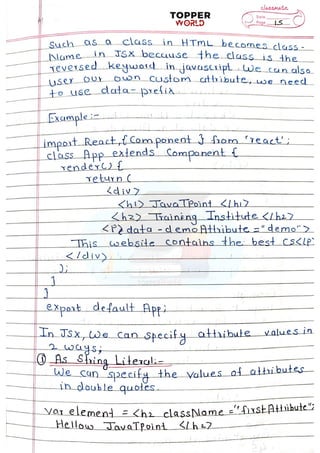 classmate
Date
Page 15
TOPPER
WORLD
Such as a class in HTML becomes class-
Name in JSX because the class is the
reversed keyword in javascript. We can also
user our own custom attribute, we need
to use data-prefix
Example:-
import React, { Component } from 'react';
class App extends Component {
render() {
return (
<div>
<h1> JavaTpoint </h1>
<h2> Training Institute </h2>
<P> data-demoAttribute = "demo">
This website contains the best CS</P
</div>
);
}
}
export default App;
In JSX, We can specify attribute values in
2 ways;
① As String Literal:-
We can specify the values of attributes
in double quotes.
var element = <h2 className = "firstAttribute";
Hellow JavaTpoint </h2>